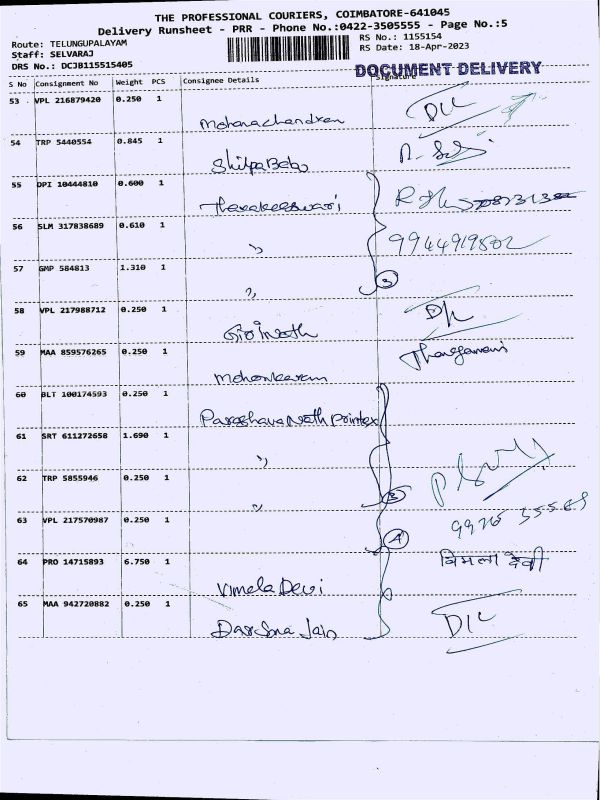 THE PROFESSIONAL COURIERS, COIMBATORE-641045
Delivery Runsheet - PRR - Phone No.:0422-3505555 - Page No.:5
Route: TELUNGUPALAYAM
Staff: SELVARAJ
DRS No.: DCJB115515405
RS No.: 1155154
RS Date: 18-Apr-2023
DOCUMENT DELIVERY
S No Consignment No Weight PCS Consignee Details Signature
53 VPL 216879420 0.250 1
Mohanachandran
54 TRP 5440554 0.845 1
Shilpa Babu
55 DPI 10444810 0.600 1
Tharakeeswari
56 SLM 317838689 0.610 1
" 9944919802
57 GMP 584813 1.310 1
" 3
58 VPL 217988712 0.250 1
Girinath
59 MAA 859576265 0.250 1
Mohankaram
60 BLT 100174593 0.250 1
Parashava Nath Printex
61 SRT 611272658 1.690 1
"
62 TRP 5855946 0.250 1
" 3
63 VPL 217570987 0.250 1
4
64 PRO 14715893 6.750 1
Vimela Devi विमला देवी
65 MAA 942720882 0.250 1
Darsna Jain